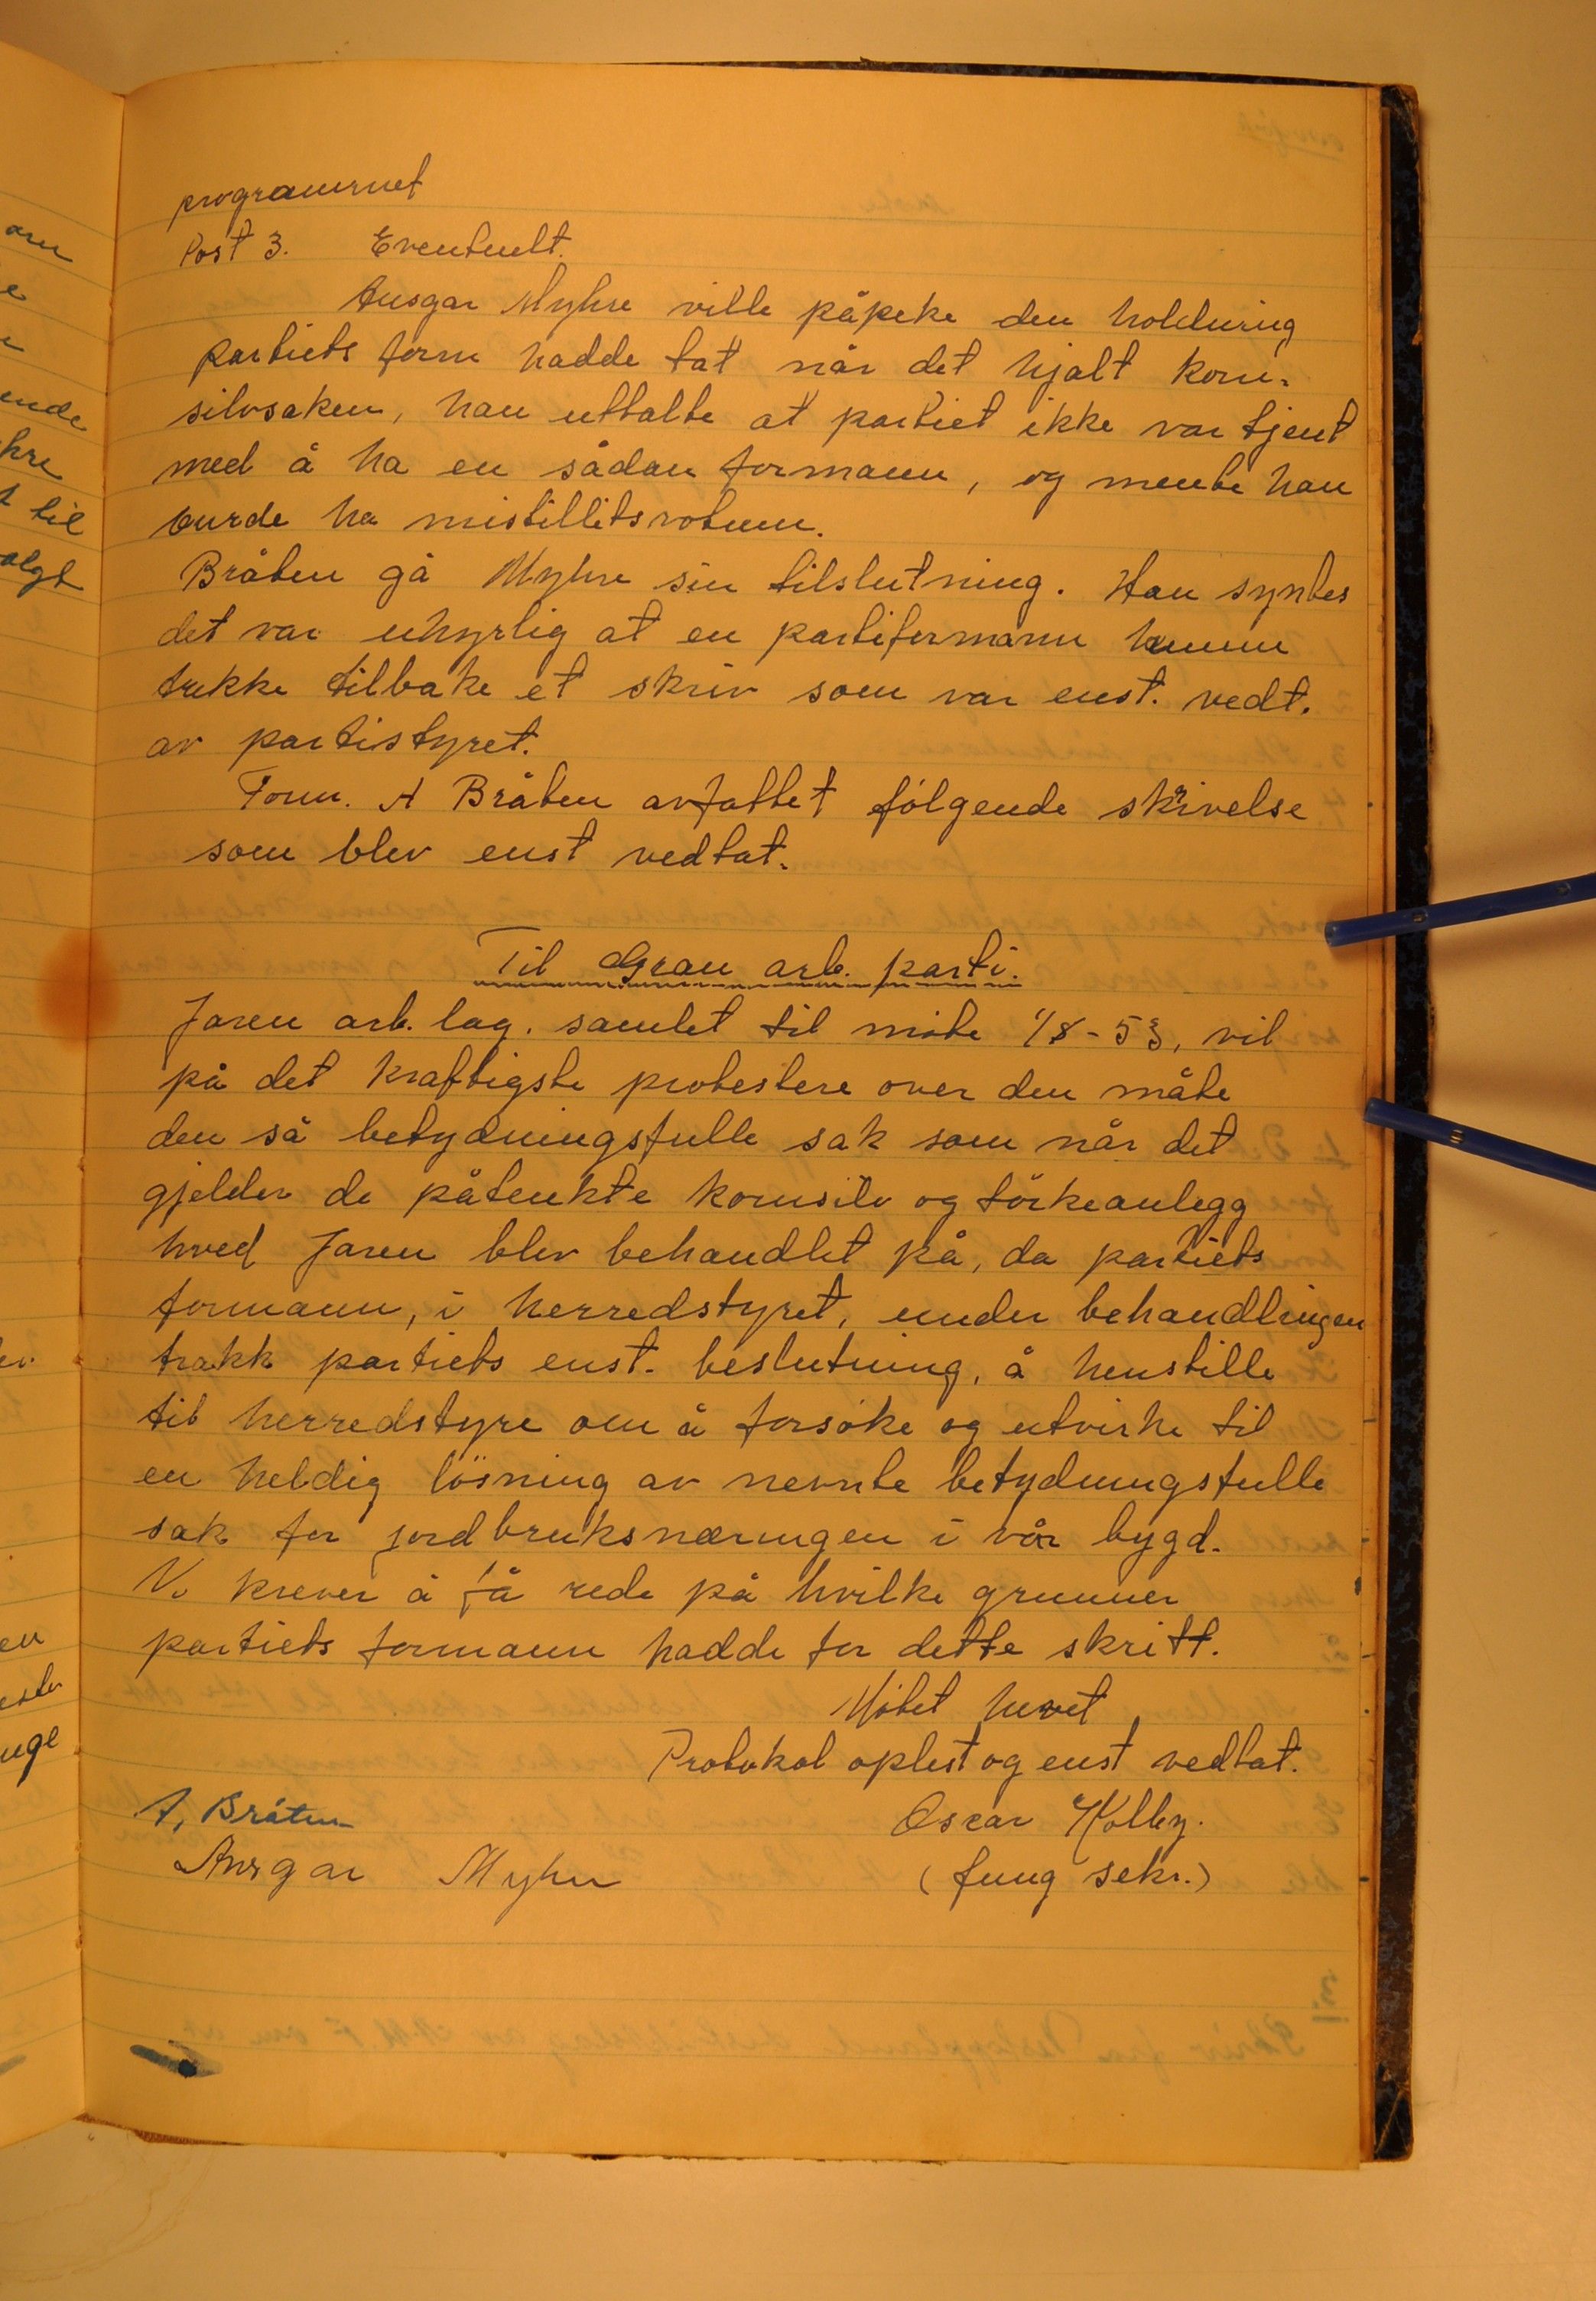 programmet
Post 3. Eventuelt.
Ansgar Myhre ville påpeke den holdning
partiets form hadde tat når det hjalt korn-
silosaken, han uttalte at partiet ikke var tjent
med å ha en sådan formann, og mente han
burde ha mistillitsvotum.
Bråten gå Myhre sin tilslutning. Han syntes
det var uhyrlig at en partiformann kunne
trekke tilbake et skriv som var enst. vedt.
av partistyret.
Form. A Bråten avfattet følgende skrivelse
som blev enst vedtat.
Til Gran arb. parti.
Jaren arb. lag. samlet til møte 1/8-53, vil
på det kraftigste protestere over den måte
den så betydningsfulle sak som når det
gjelder de påtenkte kornsilo og törkeanlegg
hved Jaren blev behandlet på, da partiets
formann, i herredstyret, under behandlingen
trakk partiets enst. beslutning, å henstille
til herredstyre om å forsøke og utvirke til
en heldig lösning av nevnte betydningsfulle
sak for jordbruksnæringen i vår bygd.
Vi krever å få rede på hvilke grunner
partiets formann hadde for dette skritt.
Møtet hevet
Protokol oplest og enst vedtat.
A. Bråten Oscar Kolby.
Ansgar Myhre (fung sekr.)
om
e
ende
hre
t til
algt
en
uge